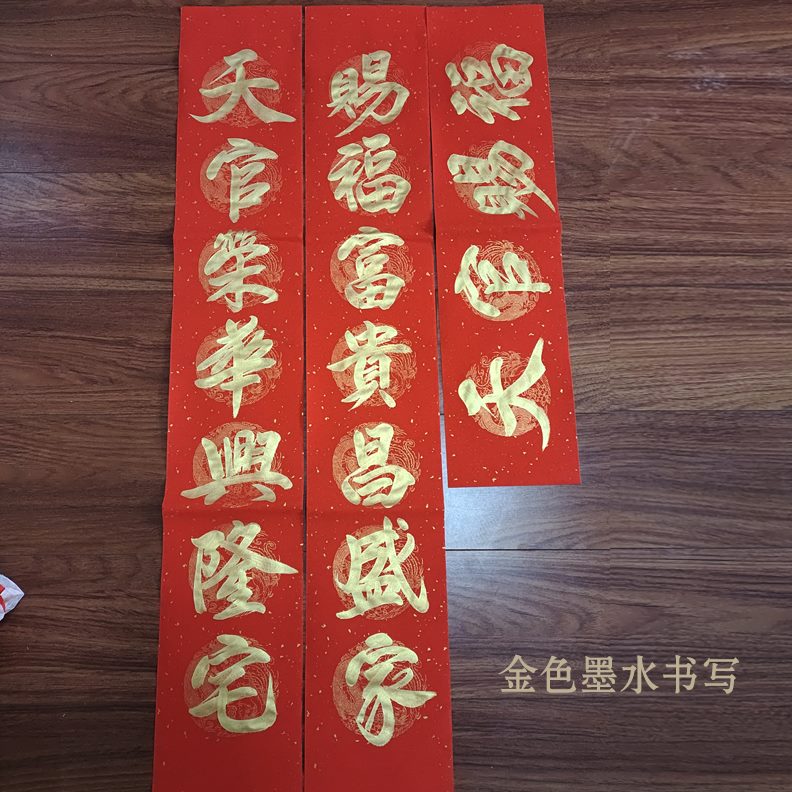 天官榮華興隆宅
賜福富貴昌盛家
天官賜福
金色墨水书写